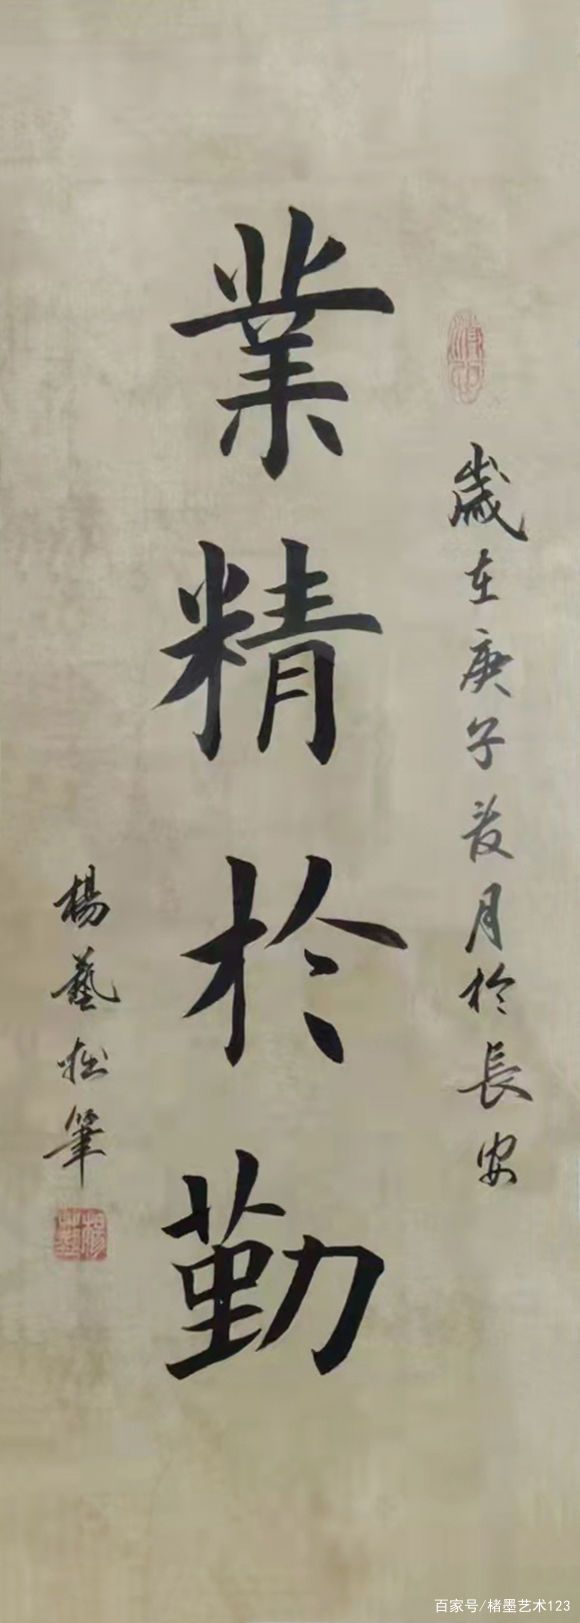 歲在庚子月於長安
業精於勤
楊藝拙筆
百家号/楮墨艺术123